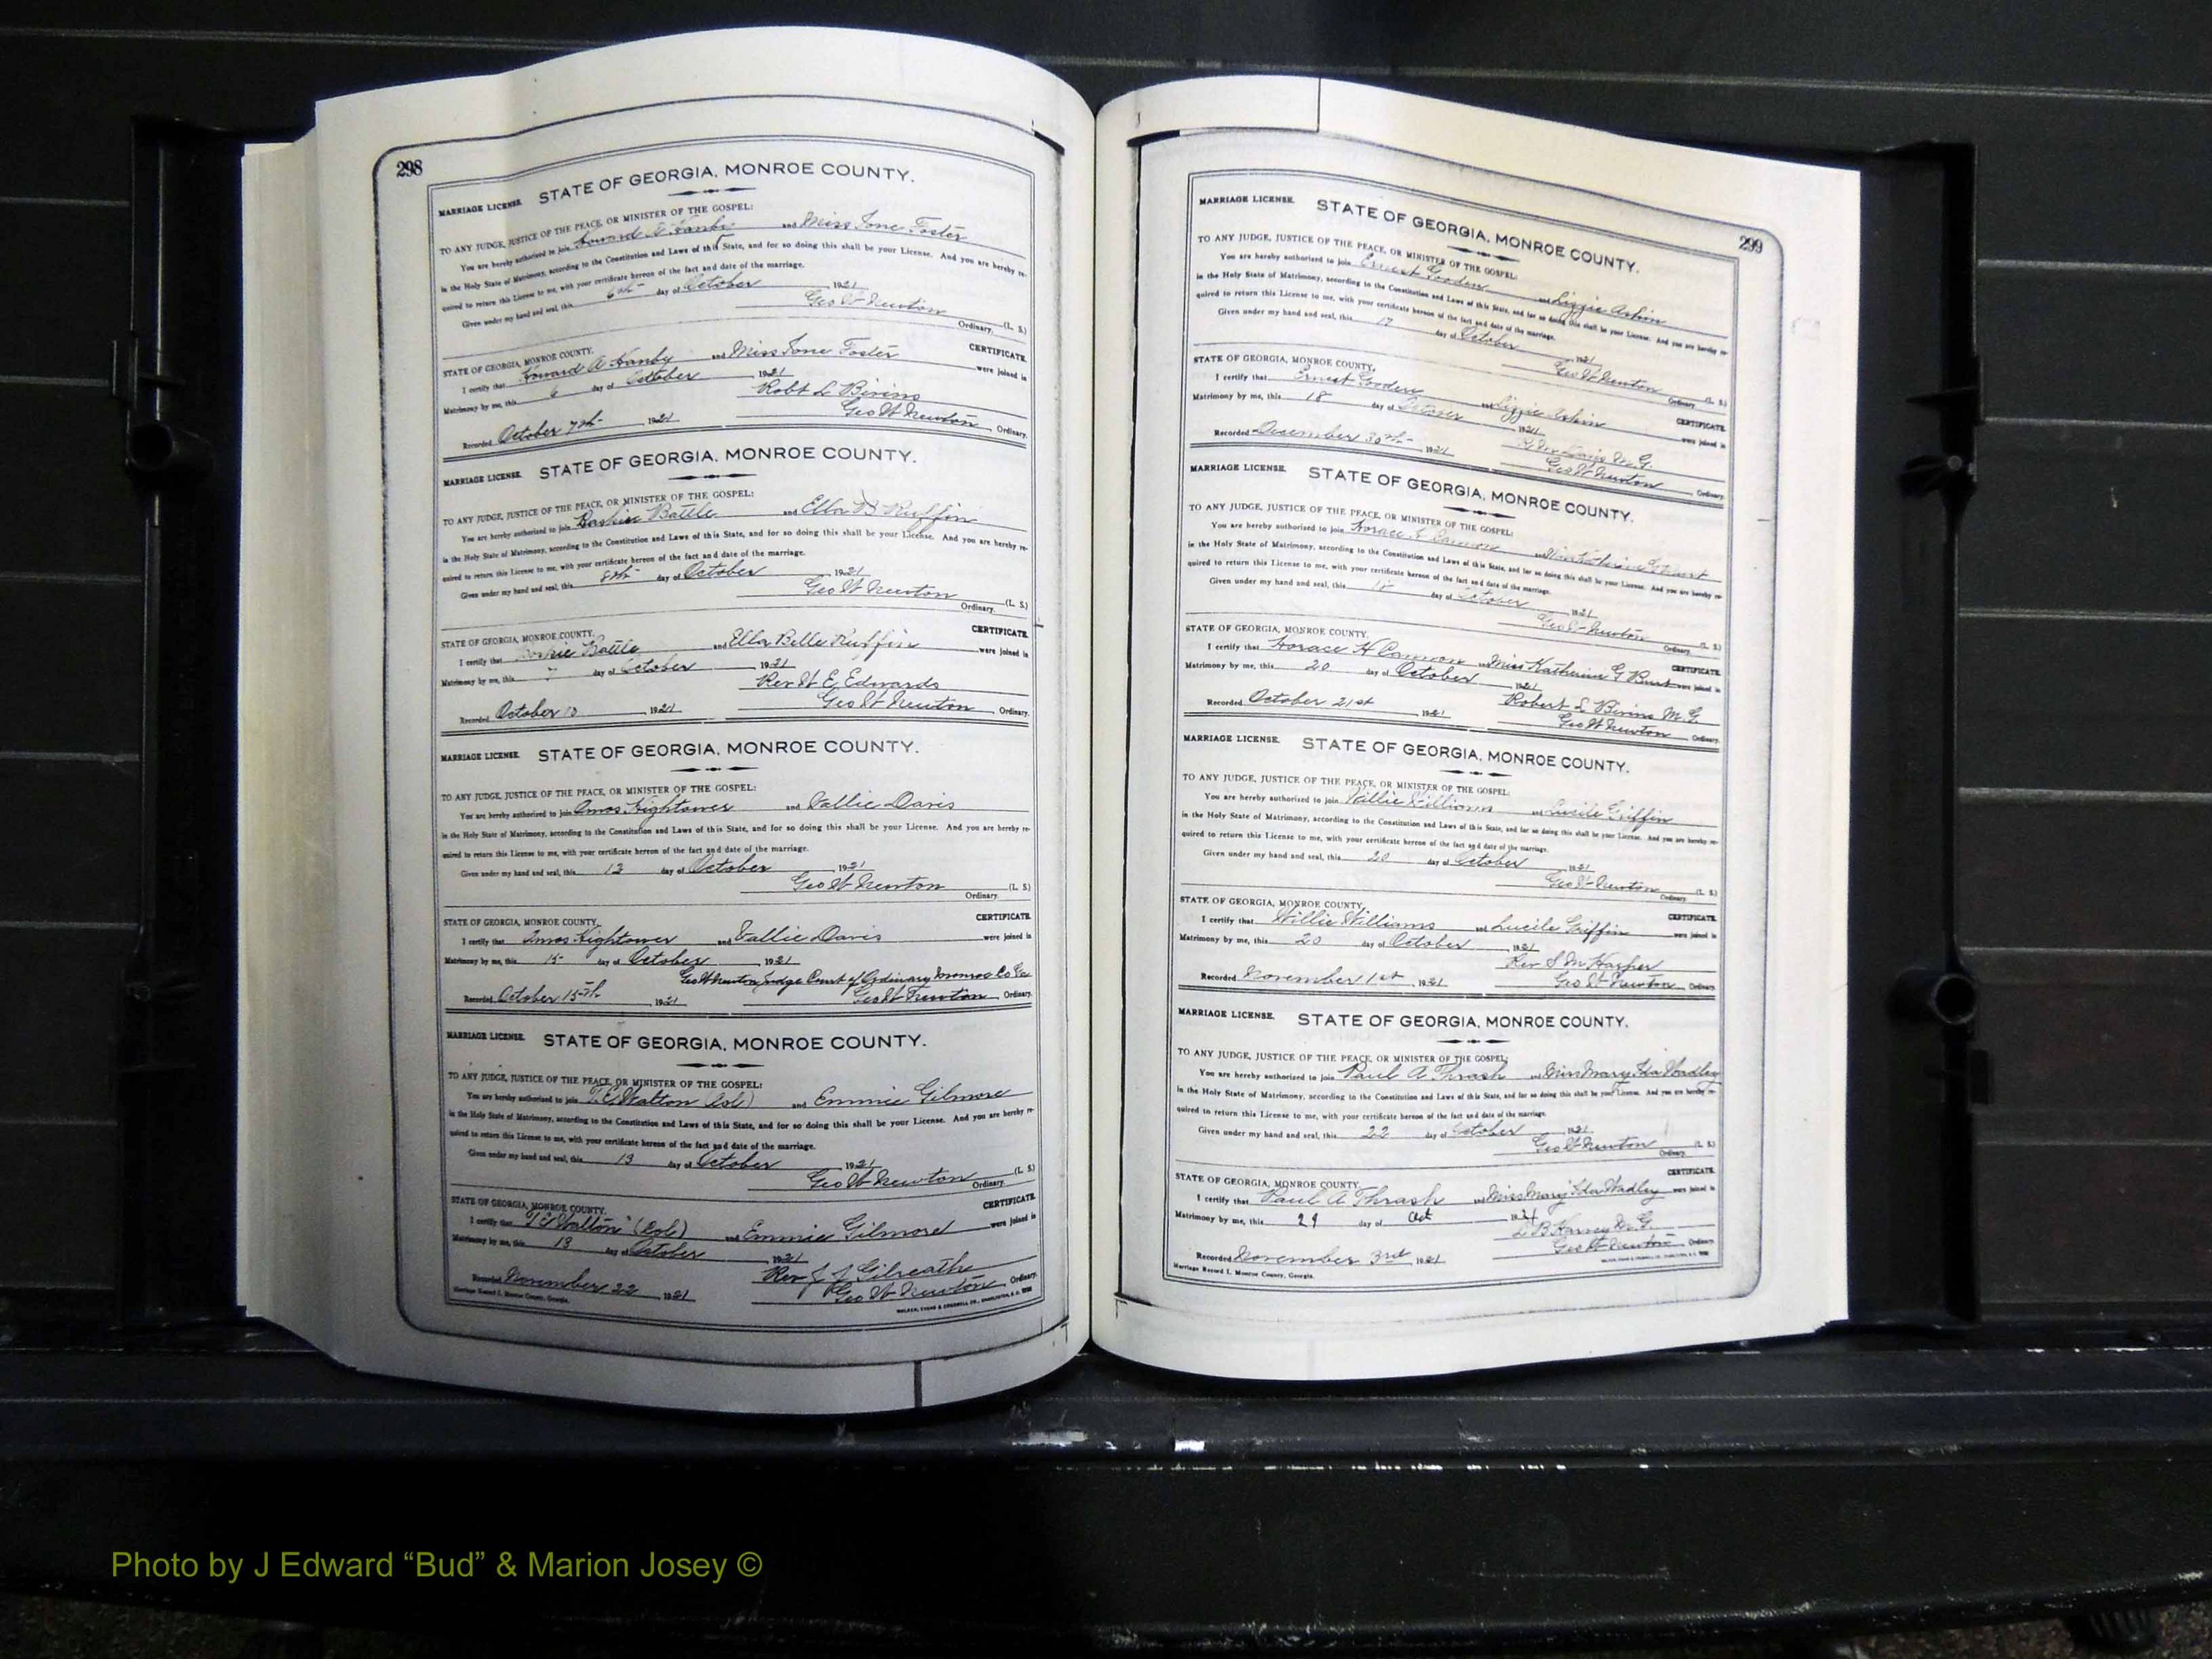 298
MARRIAGE LICENSE. STATE OF GEORGIA, MONROE COUNTY.
TO ANY JUDGE, JUSTICE OF THE PEACE, OR MINISTER OF THE GOSPEL:
You are hereby authorized to join Howard A Hanby and Miss Ione Foster
in the Holy State of Matrimony, according to the Constitution and Laws of this State, and for so doing this shall be your License. And you are hereby re-
quired to return this License to me, with your certificate hereon of the fact and date of the marriage.
Given under my hand and seal, this 6th day of October 1921
Geo W Newton (L. S.)
Ordinary.
STATE OF GEORGIA, MONROE COUNTY. CERTIFICATE.
I certify that Howard A Hanby and Miss Ione Foster were joined in
Matrimony by me, this 6 day of October 1921
Robt L Bivins
Recorded October 7th 1921 Geo W Newton Ordinary.
MARRIAGE LICENSE. STATE OF GEORGIA, MONROE COUNTY.
TO ANY JUDGE, JUSTICE OF THE PEACE, OR MINISTER OF THE GOSPEL:
You are hereby authorized to join Battle and Ella B Ruffin
in the Holy State of Matrimony, according to the Constitution and Laws of this State, and for so doing this shall be your License. And you are hereby re-
quired to return this License to me, with your certificate hereon of the fact and date of the marriage.
Given under my hand and seal, this 8th day of October 1921
Geo W Newton (L. S.)
Ordinary.
STATE OF GEORGIA, MONROE COUNTY. CERTIFICATE.
I certify that Battle and Ella Belle Ruffin were joined in
Matrimony by me, this day of October 1921
Rev W E Edwards
Recorded October 10 1921 Geo W Newton Ordinary.
MARRIAGE LICENSE. STATE OF GEORGIA, MONROE COUNTY.
TO ANY JUDGE, JUSTICE OF THE PEACE, OR MINISTER OF THE GOSPEL:
You are hereby authorized to join Amos Hightower and Vallie Davis
in the Holy State of Matrimony, according to the Constitution and Laws of this State, and for so doing this shall be your License. And you are hereby re-
quired to return this License to me, with your certificate hereon of the fact and date of the marriage.
Given under my hand and seal, this 13 day of October 1921
Geo W Newton (L. S.)
Ordinary.
STATE OF GEORGIA, MONROE COUNTY. CERTIFICATE.
I certify that Amos Hightower and Vallie Davis were joined in
Matrimony by me, this 15 day of October 1921
Geo W Newton Judge Court of Ordinary Monroe Co Ga
Recorded October 15th 1921 Geo W Newton Ordinary.
MARRIAGE LICENSE. STATE OF GEORGIA, MONROE COUNTY.
TO ANY JUDGE, JUSTICE OF THE PEACE, OR MINISTER OF THE GOSPEL:
You are hereby authorized to join T. E. Walton (Col) and Emmie Gilmore
in the Holy State of Matrimony, according to the Constitution and Laws of this State, and for so doing this shall be your License. And you are hereby re-
quired to return this License to me, with your certificate hereon of the fact and date of the marriage.
Given under my hand and seal, this 13 day of October 1921
Geo W Newton (L. S.)
Ordinary.
STATE OF GEORGIA, MONROE COUNTY. CERTIFICATE.
I certify that T E Walton (Col) and Emmie Gilmore were joined in
Matrimony by me, this 13 day of October 1921
Rev J J Gilreath
Recorded November 22 1921 Geo W Newton Ordinary.
Marriage Record I, Monroe County, Georgia. WALKER, EVANS & COGSWELL CO., CHARLESTON, S. C.
299
MARRIAGE LICENSE. STATE OF GEORGIA, MONROE COUNTY.
TO ANY JUDGE, JUSTICE OF THE PEACE, OR MINISTER OF THE GOSPEL:
You are hereby authorized to join Ernest Gooden and Lizzie Askin
in the Holy State of Matrimony, according to the Constitution and Laws of this State, and for so doing this shall be your License. And you are hereby re-
quired to return this License to me, with your certificate hereon of the fact and date of the marriage.
Given under my hand and seal, this 17 day of October 1921
Geo W Newton (L. S.)
Ordinary.
STATE OF GEORGIA, MONROE COUNTY. CERTIFICATE.
I certify that Ernest Gooden and Lizzie Askin were joined in
Matrimony by me, this 18 day of October 1921
Davis M.G.
Recorded December 30th 1921 Geo W Newton Ordinary.
MARRIAGE LICENSE. STATE OF GEORGIA, MONROE COUNTY.
TO ANY JUDGE, JUSTICE OF THE PEACE, OR MINISTER OF THE GOSPEL:
You are hereby authorized to join Horace H Cannon and Miss Katherine G Burt
in the Holy State of Matrimony, according to the Constitution and Laws of this State, and for so doing this shall be your License. And you are hereby re-
quired to return this License to me, with your certificate hereon of the fact and date of the marriage.
Given under my hand and seal, this day of October 1921
Geo W Newton (L. S.)
Ordinary.
STATE OF GEORGIA, MONROE COUNTY. CERTIFICATE.
I certify that Horace H Cannon and Miss Katherine G Burt were joined in
Matrimony by me, this 20 day of October 1921
Robert L Bivins M.G.
Recorded October 21st 1921 Geo W Newton Ordinary.
MARRIAGE LICENSE. STATE OF GEORGIA, MONROE COUNTY.
TO ANY JUDGE, JUSTICE OF THE PEACE, OR MINISTER OF THE GOSPEL:
You are hereby authorized to join Willie Williams and Lucile Griffin
in the Holy State of Matrimony, according to the Constitution and Laws of this State, and for so doing this shall be your License. And you are hereby re-
quired to return this License to me, with your certificate hereon of the fact and date of the marriage.
Given under my hand and seal, this 20 day of October 1921
Geo W Newton (L. S.)
Ordinary.
STATE OF GEORGIA, MONROE COUNTY. CERTIFICATE.
I certify that Willie Williams and Lucile Griffin were joined in
Matrimony by me, this 20 day of October 1921
Rev S M Harper
Recorded November 1st 1921 Geo W Newton Ordinary.
MARRIAGE LICENSE. STATE OF GEORGIA, MONROE COUNTY.
TO ANY JUDGE, JUSTICE OF THE PEACE, OR MINISTER OF THE GOSPEL:
You are hereby authorized to join Paul A Thrash and Miss Mary Ida Wadley
in the Holy State of Matrimony, according to the Constitution and Laws of this State, and for so doing this shall be your License. And you are hereby re-
quired to return this License to me, with your certificate hereon of the fact and date of the marriage.
Given under my hand and seal, this 22 day of October 1921
Geo W Newton (L. S.)
Ordinary.
STATE OF GEORGIA, MONROE COUNTY. CERTIFICATE.
I certify that Paul A Thrash and Miss Mary Ida Wadley were joined in
Matrimony by me, this 29 day of Oct 1921
L B Harvey M.G.
Recorded November 3rd 1921 Geo W Newton Ordinary.
Marriage Record I, Monroe County, Georgia.
Photo by J Edward “Bud” & Marion Josey ©